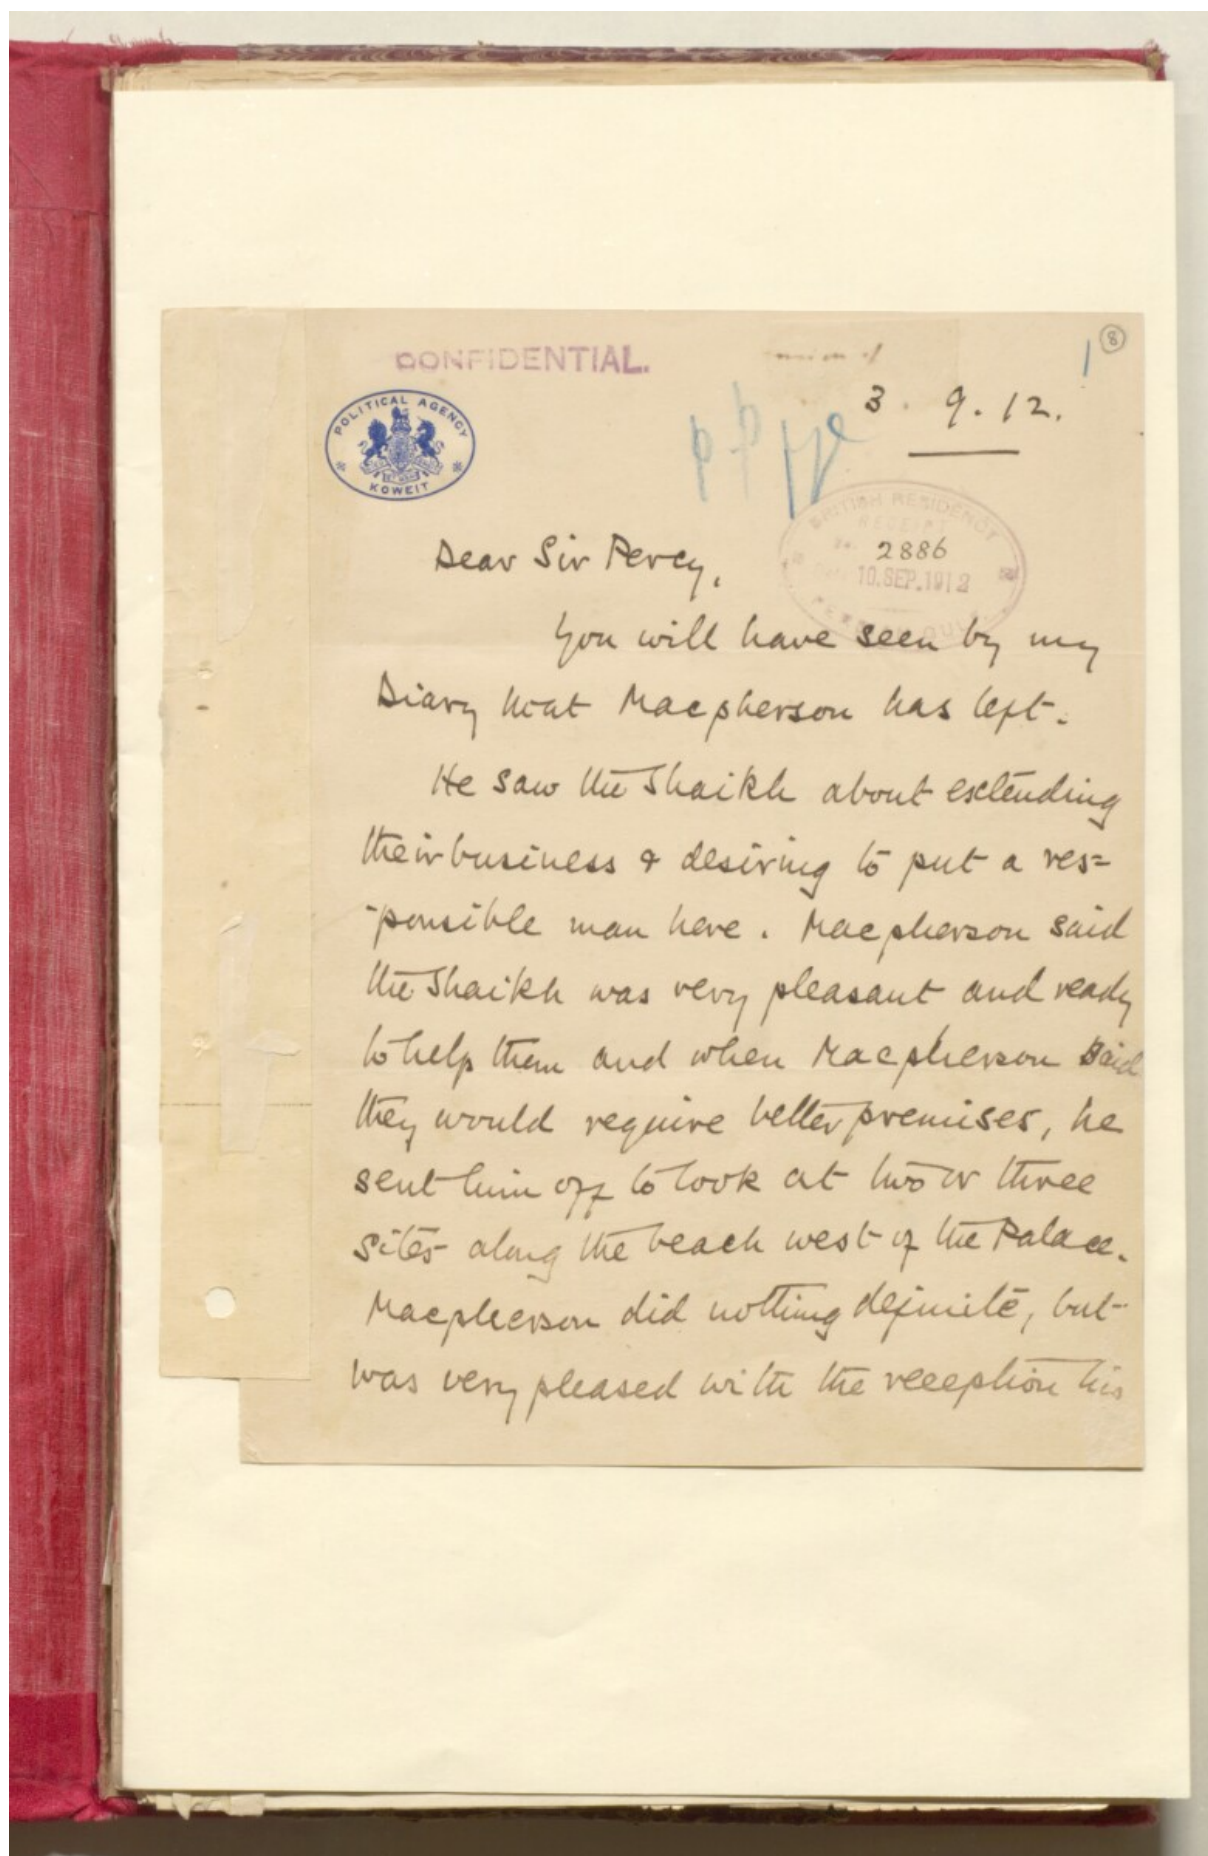 8
1
CONFIDENTIAL.
POLITICAL AGENCY
KOWEIT
3. 9. 12.
BRITISH RESIDENCY
RECEIPT
2886
10.SEP.1912
Dear Sir Percy,
You will have seen by my
Diary that Macpherson has left.
He saw the Shaikh about extending
their business & desiring to put a res=
-ponsible man here. Macpherson said
the Shaikh was very pleasant and ready
to help them and when Macpherson said
they would require better premises, he
sent him off to look at two or three
sites along the beach west of the Palace.
Macpherson did nothing definite, but
was very pleased with the reception his